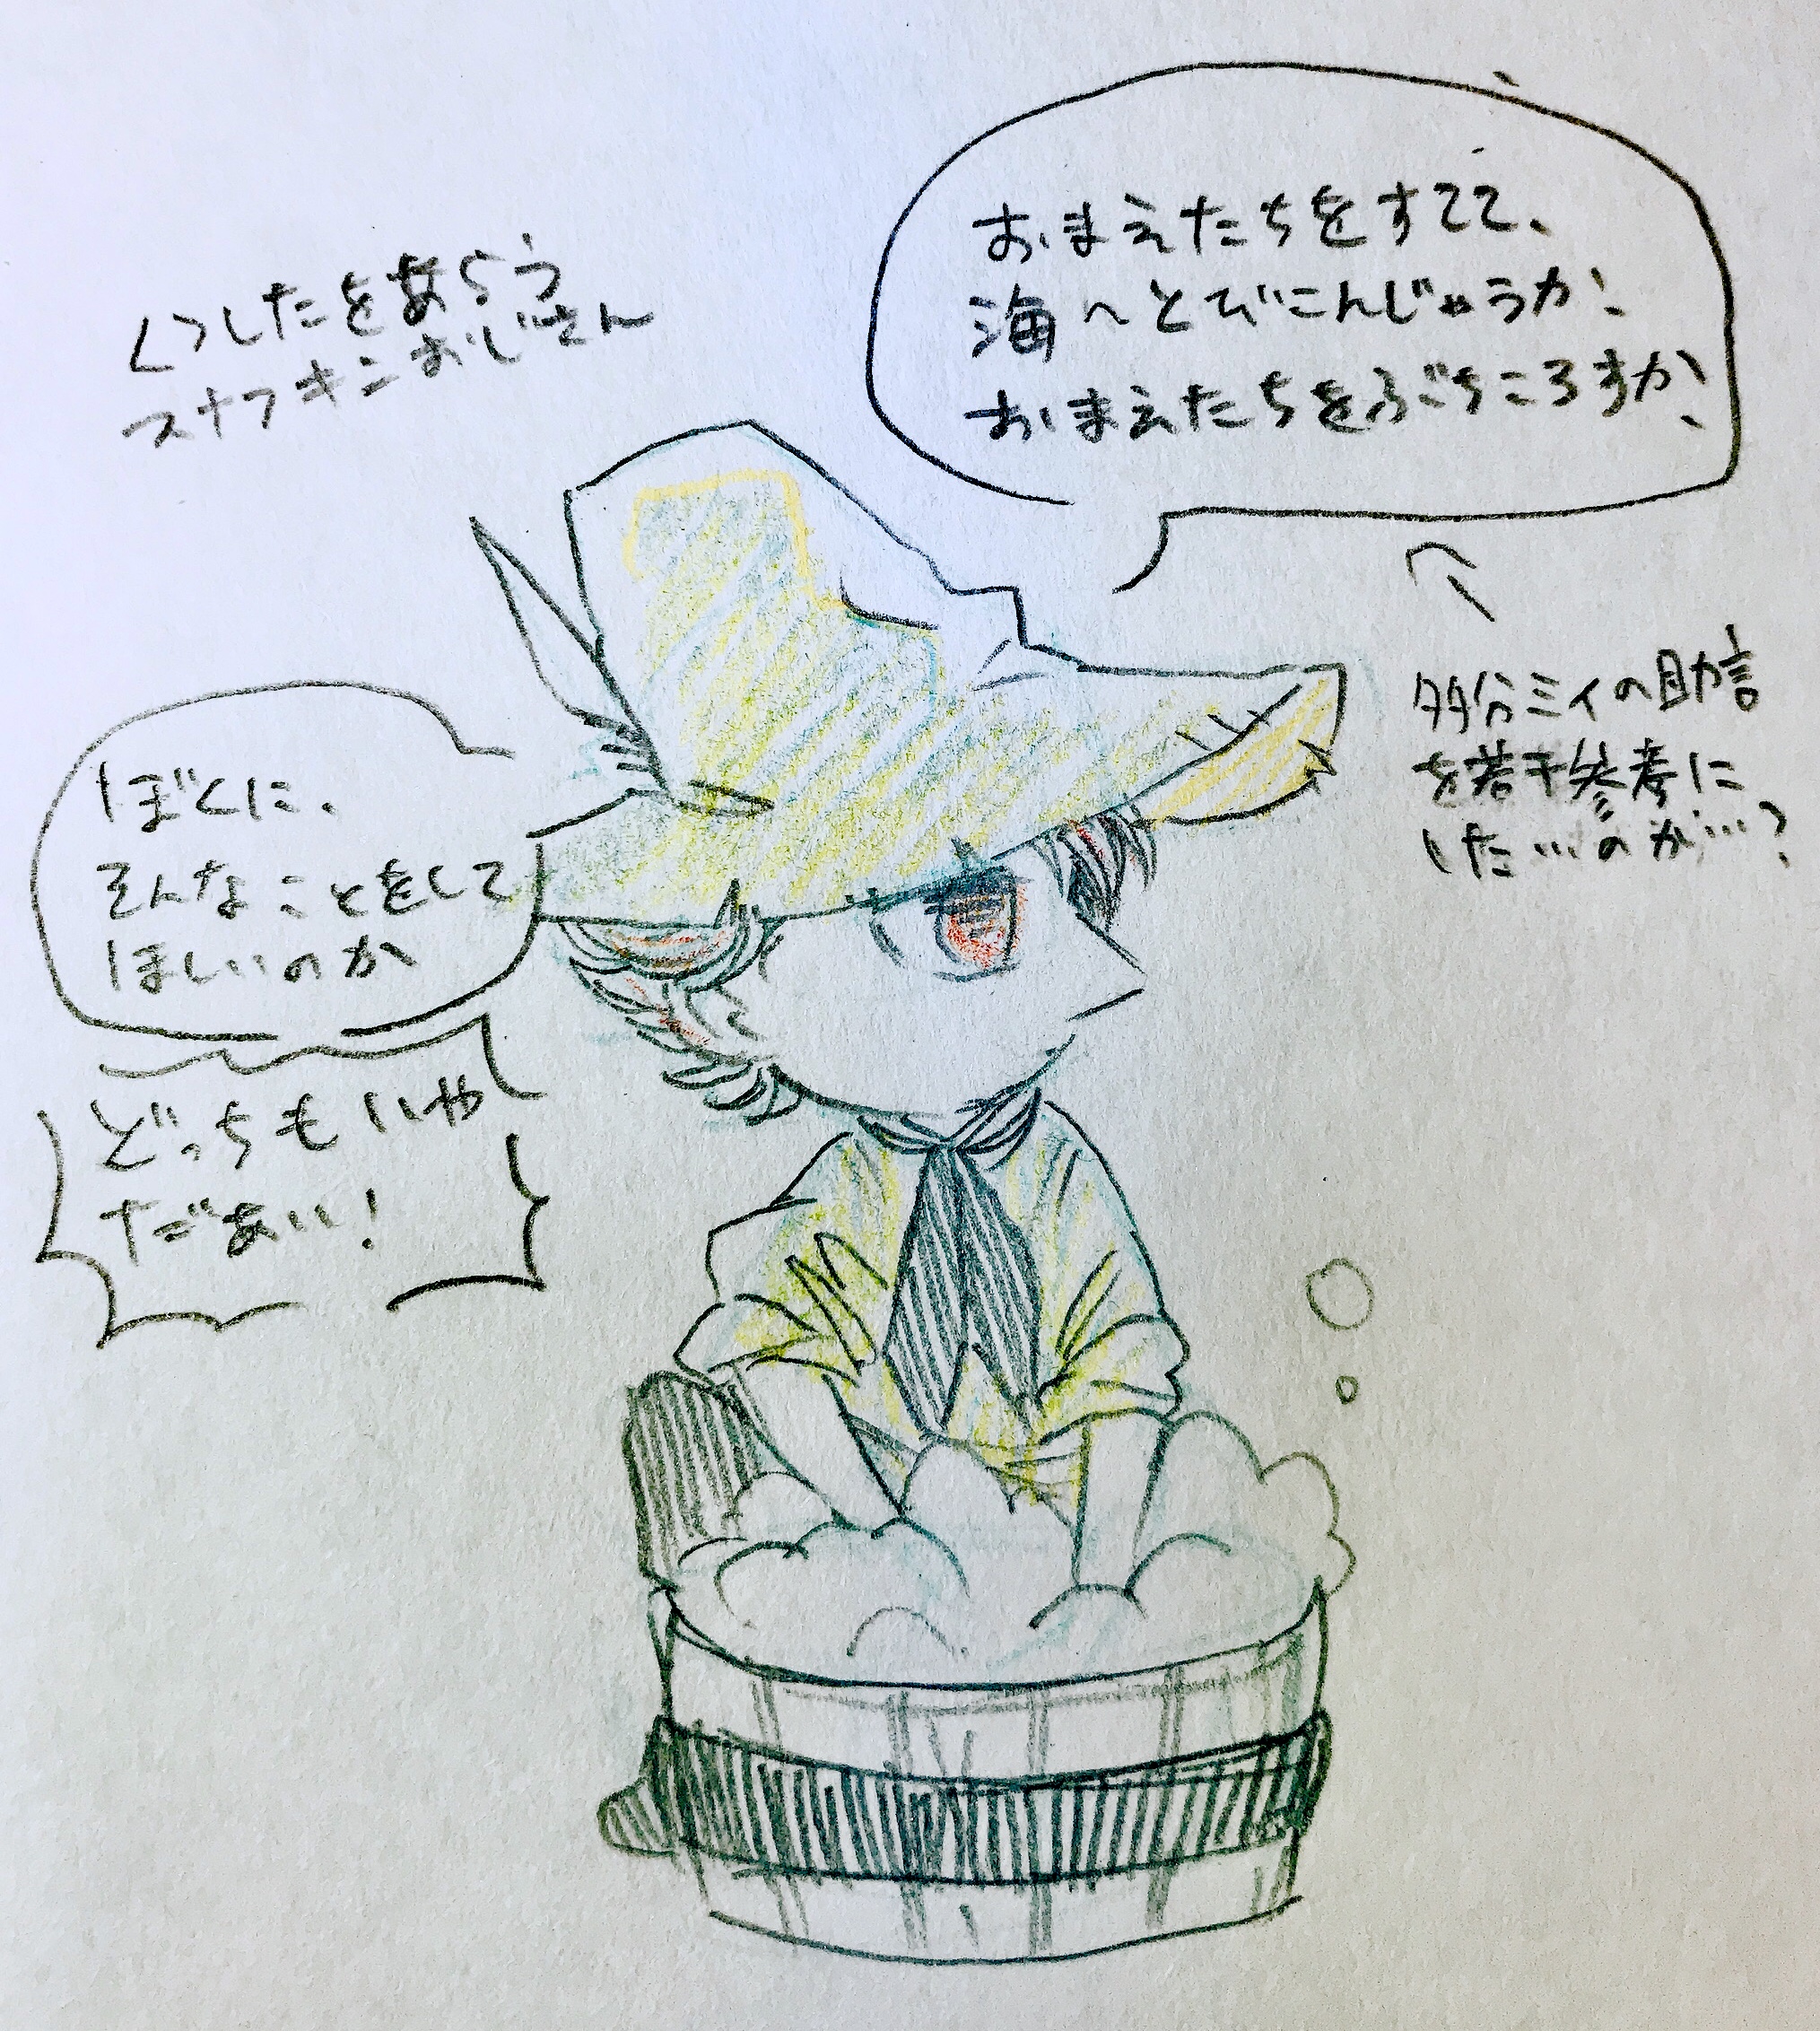 くつしたをあらう
スナフキンおじさん
おまえたちをすてて、
海へとびこんじゃうか、
おまえたちをぶちころすか、
多分ミイの助言
を若干参考に
した…のか…?
ぼくに、
そんなことをして
ほしいのか
どっちもいや
だあい!